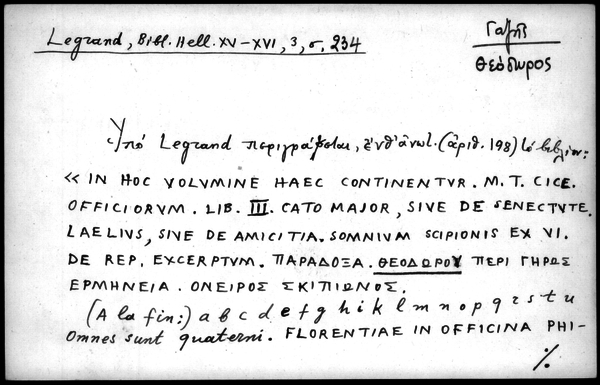 Legrand, Bibl. Hell. XV-XVI, 3, σ, 234
Γαζῆς
Θεόδωρος
Ὑπό Legrand περιγράφεται, ἔνθ' ἀνωτ. (ἀριθ. 198) τό βιβλίον:
« IN HOC VOLVMINE HAEC CONTINENTVR. M. T. CICE.
OFFICIORVM. LIB. III. CATO MAJOR, SIVE DE SENECTVTE.
LAELIVS, SIVE DE AMICITIA. SOMNIVM SCIPIONIS EX VI.
DE REP. EXCERPTVM. ΠΑΡΑΔΟΞΑ. ΘΕΟΔΩΡΟΥ ΠΕΡΙ ΓΗΡΩΣ
ΕΡΜΗΝΕΙΑ. ΟΝΕΙΡΟΣ ΣΚΙΠΙΩΝΟΣ.
(A la fin:) a b c d e f g h i k l m n o p q r s t u
Omnes sunt quaterni. FLORENTIAE IN OFFICINA PHI-
./.